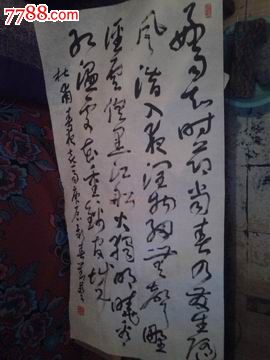 7788.com
好雨知时节当春乃发生随
风潜入夜润物细无声野
径云俱黑江船火独明晓看
红湿处花重锦官城
杜甫春夜喜雨庚辰